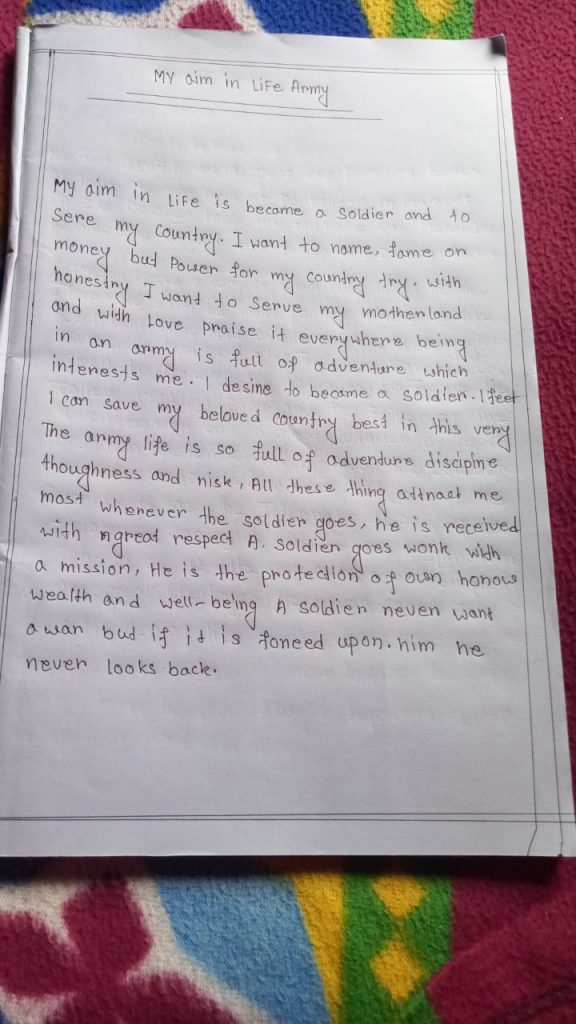 MY aim in LiFe Army
My aim in LiFe is became a Soldier and to
Sere my Country. I want to name, fame or
money but Power for my country try, with
honestry I want to Serve my motherland
and with Love praise it everywhere being
in an army is full of adventure which
interests me. I desire to became a soldier. I feel
I can save my beloved country best in this very
The army life is so full of adventure discipine
thoughness and risk, All these thing attract me
most whenever the soldier goes, he is received
with great respect A. Soldier goes work with
a mission, He is the protection of own honour
wealth and well-being A soldier never want
a war but if it is foreed upon. him he
never looks back.